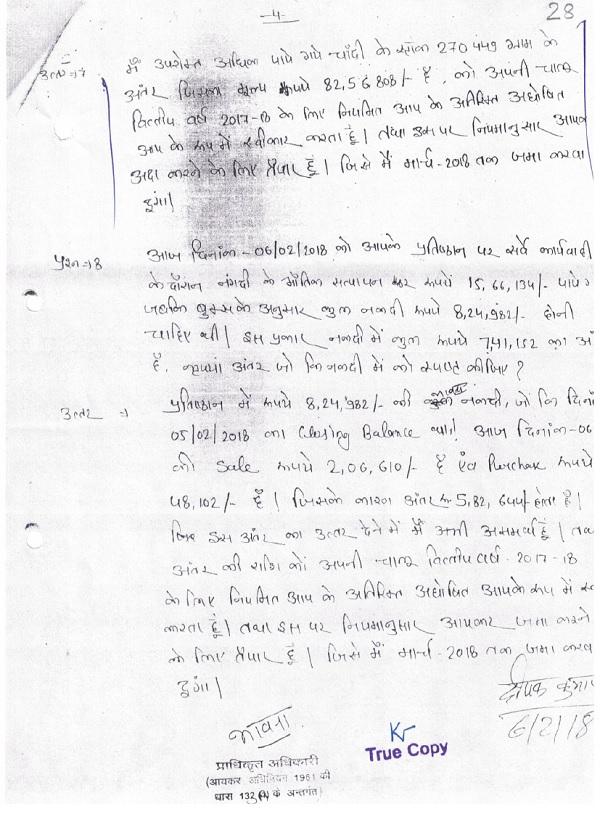 -4-
28
उत्तर⇒7 मैं उपरोक्त अधिक पाये गये चाँदी के स्टॉक 270.449 ग्राम के
अंतर जिसका मूल्य रूपये 82,56,808/- है, को अपनी चालू
वित्तीय वर्ष 2017-18 के लिए नियमित आय के अतिरिक्त अघोषित
आय के रूप में स्वीकार करता हूँ। तथा इस पर नियमानुसार आयकर
अदा करने के लिए तैयार हूँ। जिसे मैं मार्च-2018 तक जमा करवा
दूंगा।
प्रश्न⇒8 आज दिनांक-06/02/2018 को आपके प्रतिष्ठान पर सर्वे कार्यवाही
के दौरान नगदी के भौतिक सत्यापन पर रूपये 15,66,134/- पाये
जबकि बुक्स के अनुसार कुल नकदी रूपये 8,24,982/- होनी
चाहिए थी। इस प्रकार नकदी में कुल रूपये 7,41,152 का अं
है, कृपया अंतर जो कि नकदी में को स्पष्ट कीजिए?
उत्तर ⇒ प्रतिष्ठान में रूपये 8,24,982/- की नकदी, जो कि दिनां
05/02/2018 का Closing Balance था। आज दिनांक-06
की Sale रूपये 2,06,610/- है एवं Purchase रूपये
48,102/- है। जिसके कारण अंतर रू 5,82,644/- होता है।
जिस इस अंतर का उत्तर देने में मैं अभी असमर्थ हूँ। तथ
अंतर की राशि को अपनी चालू वित्तीय वर्ष-2017-18
के लिए नियमित आय के अतिरिक्त अघोषित आय के रूप में स्व
करता हूँ। तथा इस पर नियमानुसार आयकर जमा करने
के लिए तैयार हूँ। जिसे मैं मार्च-2018 तक जमा करवा
दूंगा।
दीपक कुमार
6/2/18
भावना
True Copy
प्राधिकृत अधिकारी
(आयकर अधिनियम 1961 की
धारा 133(A) के अन्तर्गत)